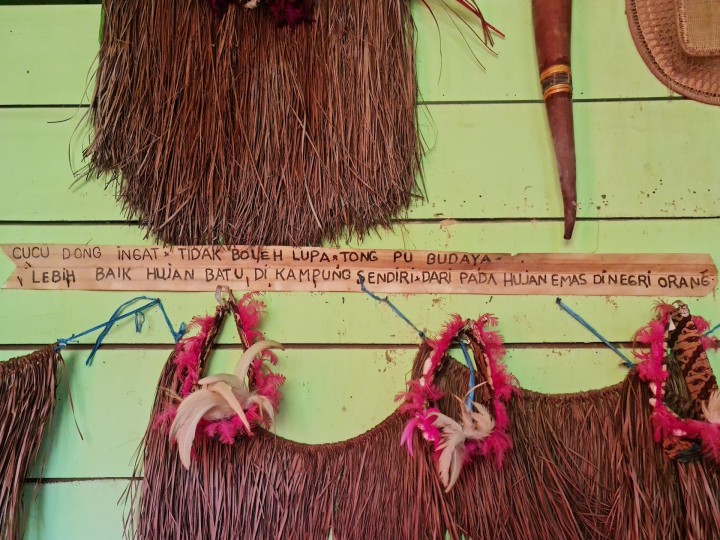 CUCU DONG INGAT² TIDAK BOLEH LUPA². TONG PU BUDAYA
LEBIH BAIK HUJAN BATU, DI KAMPUNG SENDIRI. DARI PADA HUJAN EMAS DI NEGRI ORANG.